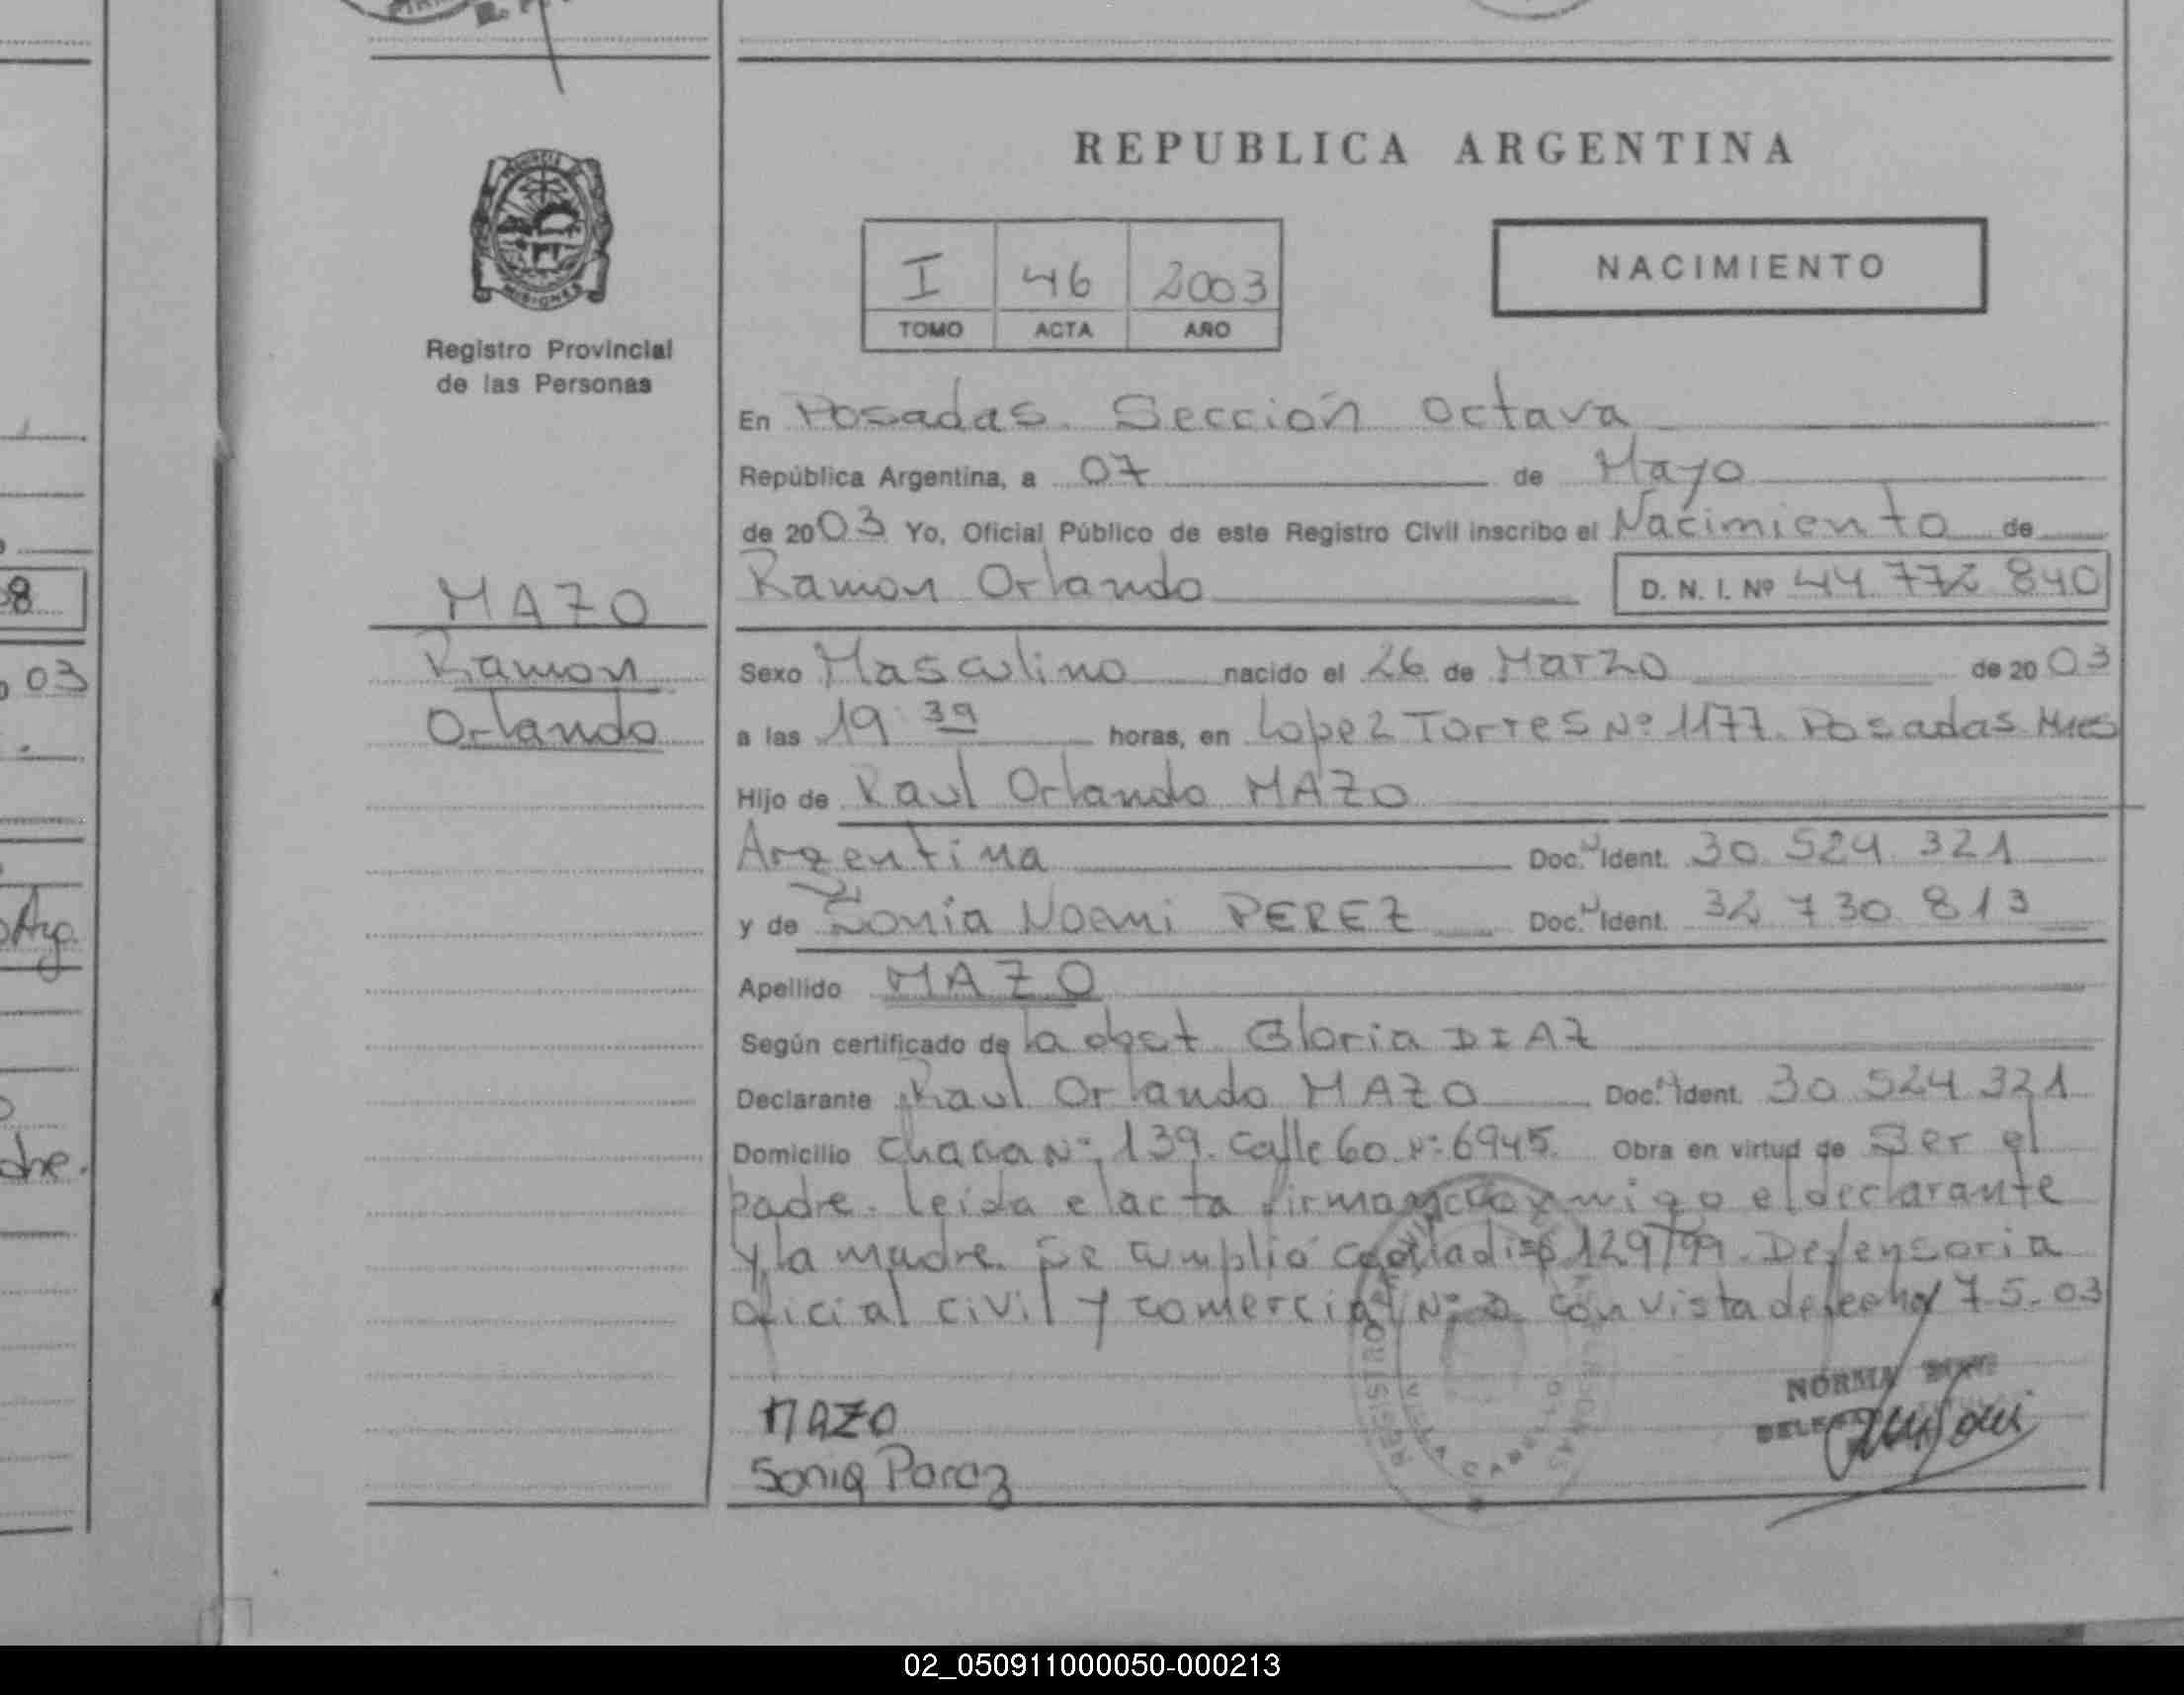 REPUBLICA ARGENTINA
I 46 2003
TOMO ACTA AÑO
NACIMIENTO
MISIONES
Registro Provincial
de las Personas
MAZO
Ramon
Orlando
En Posadas. Sección Octava
República Argentina, a 07 de Mayo
de 2003 Yo, Oficial Público de este Registro Civil inscribo el Nacimiento de
Ramon Orlando D. N. I. Nº 44 772 840
Sexo Masculino nacido el 26 de Marzo de 2003
a las 19 39 horas, en Lopez Torres Nº 1177. Posadas Mnes
Hijo de Raul Orlando MAZO
Argentina Doc. Ident. 30. 524. 321
y de Sonia Noemi PEREZ Doc. Ident. 32 730 813
Apellido MAZO
Según certificado de la obst Gloria DIAZ
Declarante Raul Orlando MAZO Doc. Ident. 30 524 321
Domicilio Chacra Nº 139. Calle 60 Nº 6945. Obra en virtud de Ser el
padre. Leida el acta firman conmigo el declarante
y la madre. Se cumplió con la disp 129/99. Defensoria
oficial civil y comercial Nº 2 con vista de fecha 7.5.03
MAZO
Sonia Parez
NORMA
REGISTRO
VILLA CABELLO
PERSONAS
08
03
Arg.
dre.
02_050911000050-000213